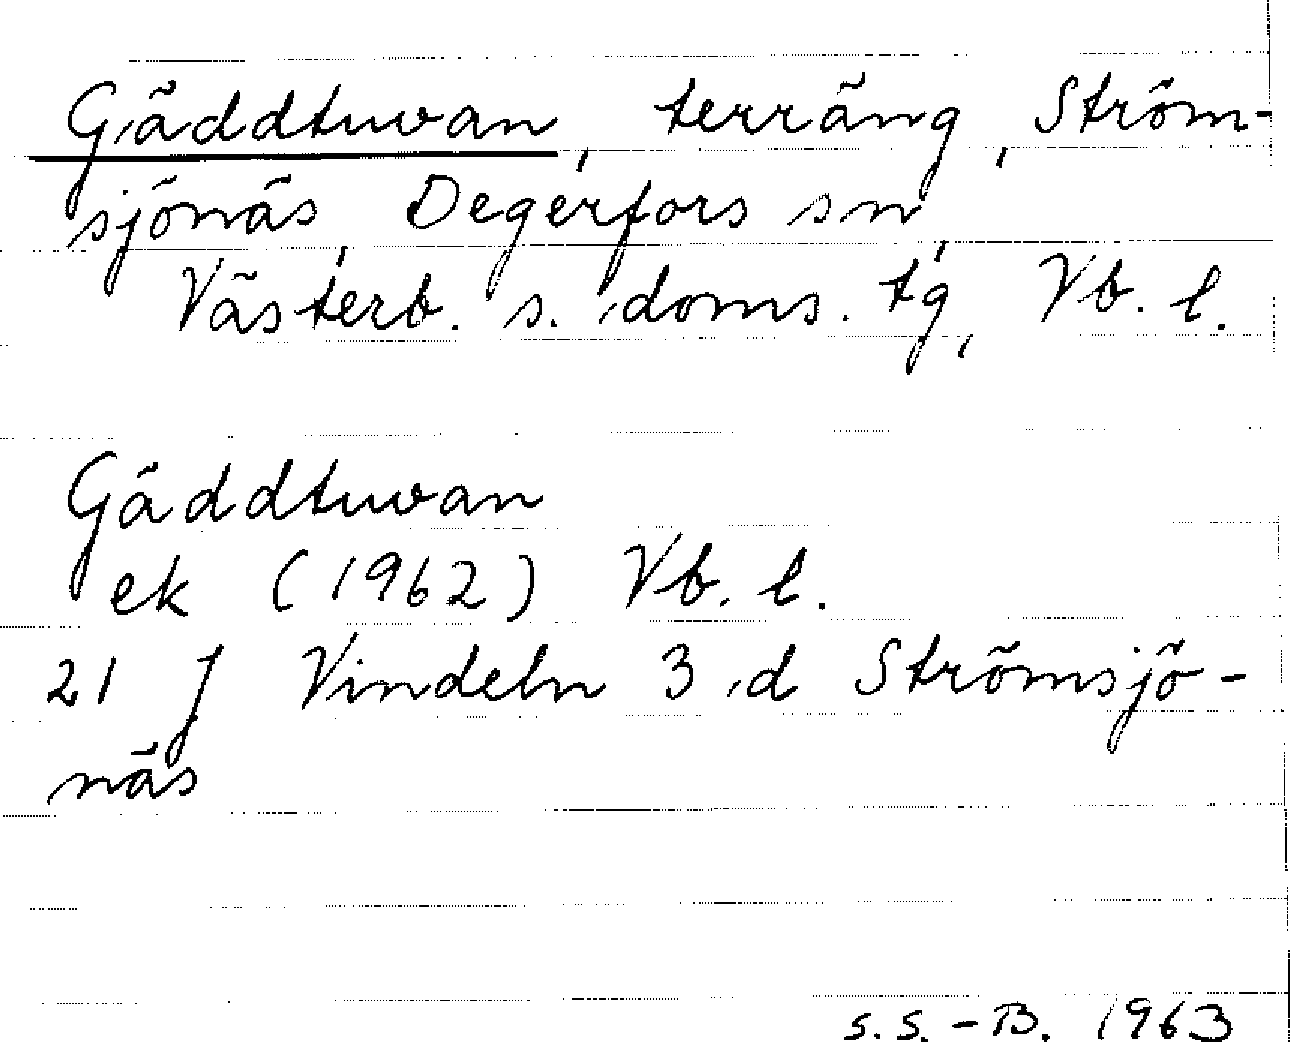 Gäddtuvan, terräng, Ström-
sjönäs, Degerfors sn,
Västerb. s. doms. tg, Vb. l.
Gäddtuvan
ek (1962) Vb. l.
21 J Vindeln 3 d Strömsjö-
näs
S.S.-B. 1963